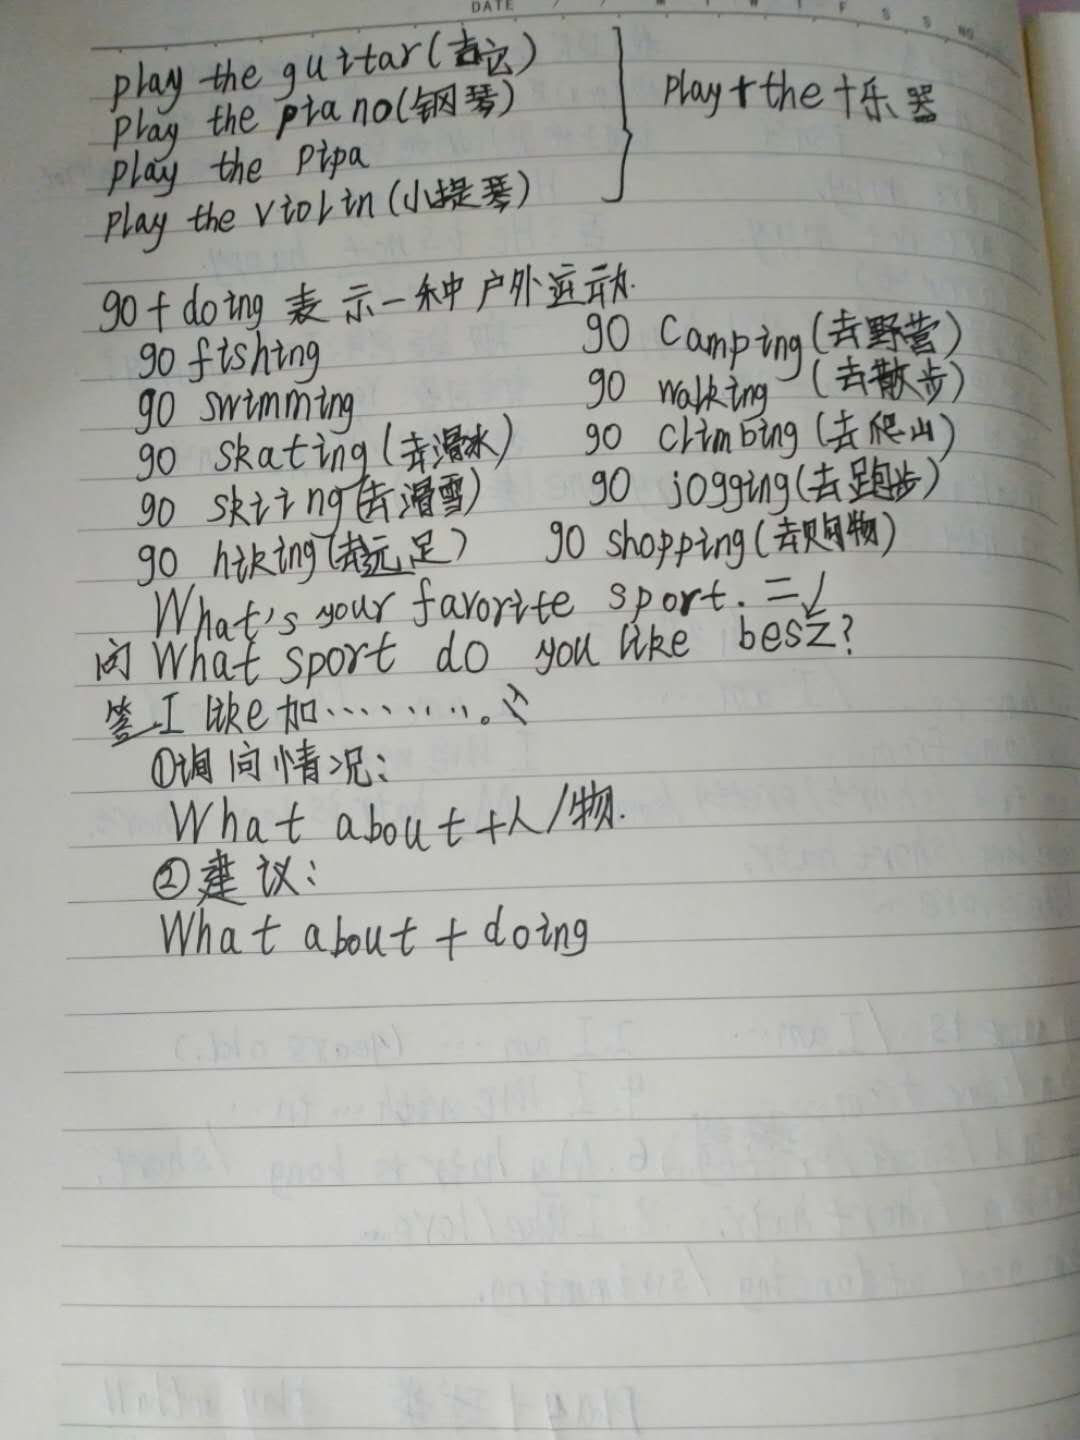 DATE
play the guitar(吉它)
play the piano(钢琴)
play the pipa
play the violin(小提琴)
play+the+乐器
go+doing 表示一种户外运动.
go fishing
go camping(去野营)
go swimming
go walking (去散步)
go skating(去滑冰)
go climbing(去爬山)
go skiing(去滑雪)
go jogging(去跑步)
go hiking(去远足)
go shopping(去购物)
What's your favorite sport. =↙
问 What sport do you like best?
答 I like 加………。
①询问情况:
What about+人/物.
②建议:
What about+doing